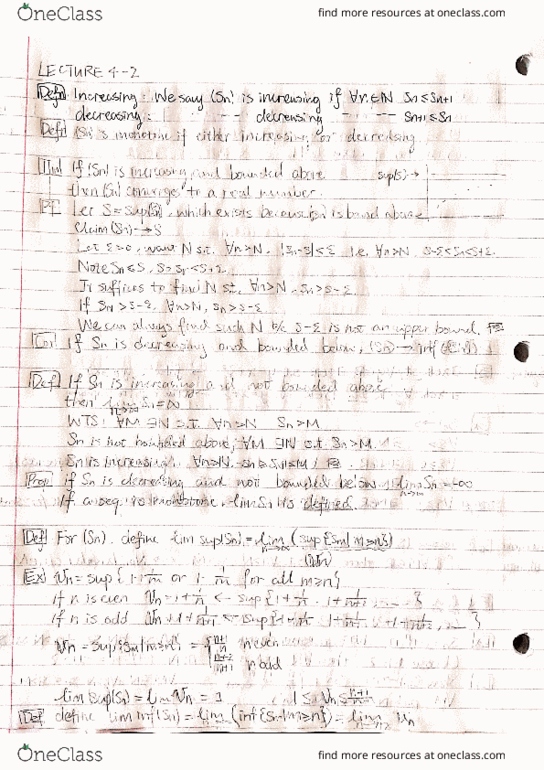 OneClass
find more resources at oneclass.com
LECTURE 4-2
Defn Increasing: We say (Sn) is increasing if ∀n∈N Sn≤Sn+1
decreasing: -- decreasing --- Sn+1≤Sn
Defn (Sn) is monotone if either increasing or decreasing.
If (Sn) is increasing and bounded above sup(S)
then (Sn) converges to a real number.
Pf Let S=sup(Sn), which exists because (Sn) is bound above
Claim (Sn)→S
Let ε>0, want N s.t. ∀n>N, |Sn-S|<ε i.e. ∀n>N, S-ε<Sn<S+ε.
Note Sn≤S, Sn<S+ε
It suffices to find N s.t. ∀n>N, Sn>S-ε
If SN>S-ε, ∀n>N, Sn>S-ε
We can always find such N b/c S-ε is not an upper bound.
Cor If Sn is decreasing and bounded below, (Sn)→inf
Def If Sn is increasing and not bounded above
then lim Sn=
WTS: ∀M ∃N s.t. ∀n>N Sn>M
Sn is not bounded above, ∀M ∃N s.t. Sn>M.
Sn is increasing, ∀n>N
Prop if Sn is decreasing and not bounded below, lim Sn=
If a seq. is monotone, lim Sn is defined.
Def For (Sn), define lim sup(Sn)=lim (sup{Sm| m≥n})
(Vn)
Ex Vn=sup{1+1/m or 1-1/m for all m≥n}
If n is even Vn=1+1/n <- sup{1+1/n, 1+1/n+1, ...}
If n is odd
Vn=sup{Sm|m≥n} = n+1/n n even
n+2/n+1 n odd
lim sup(Sn)=lim Vn=1 1≤Vn≤n+1/n
Def define lim inf(Sn)=lim (inf{Sm|m≥n})=lim Un
OneClass
find more resources at oneclass.com